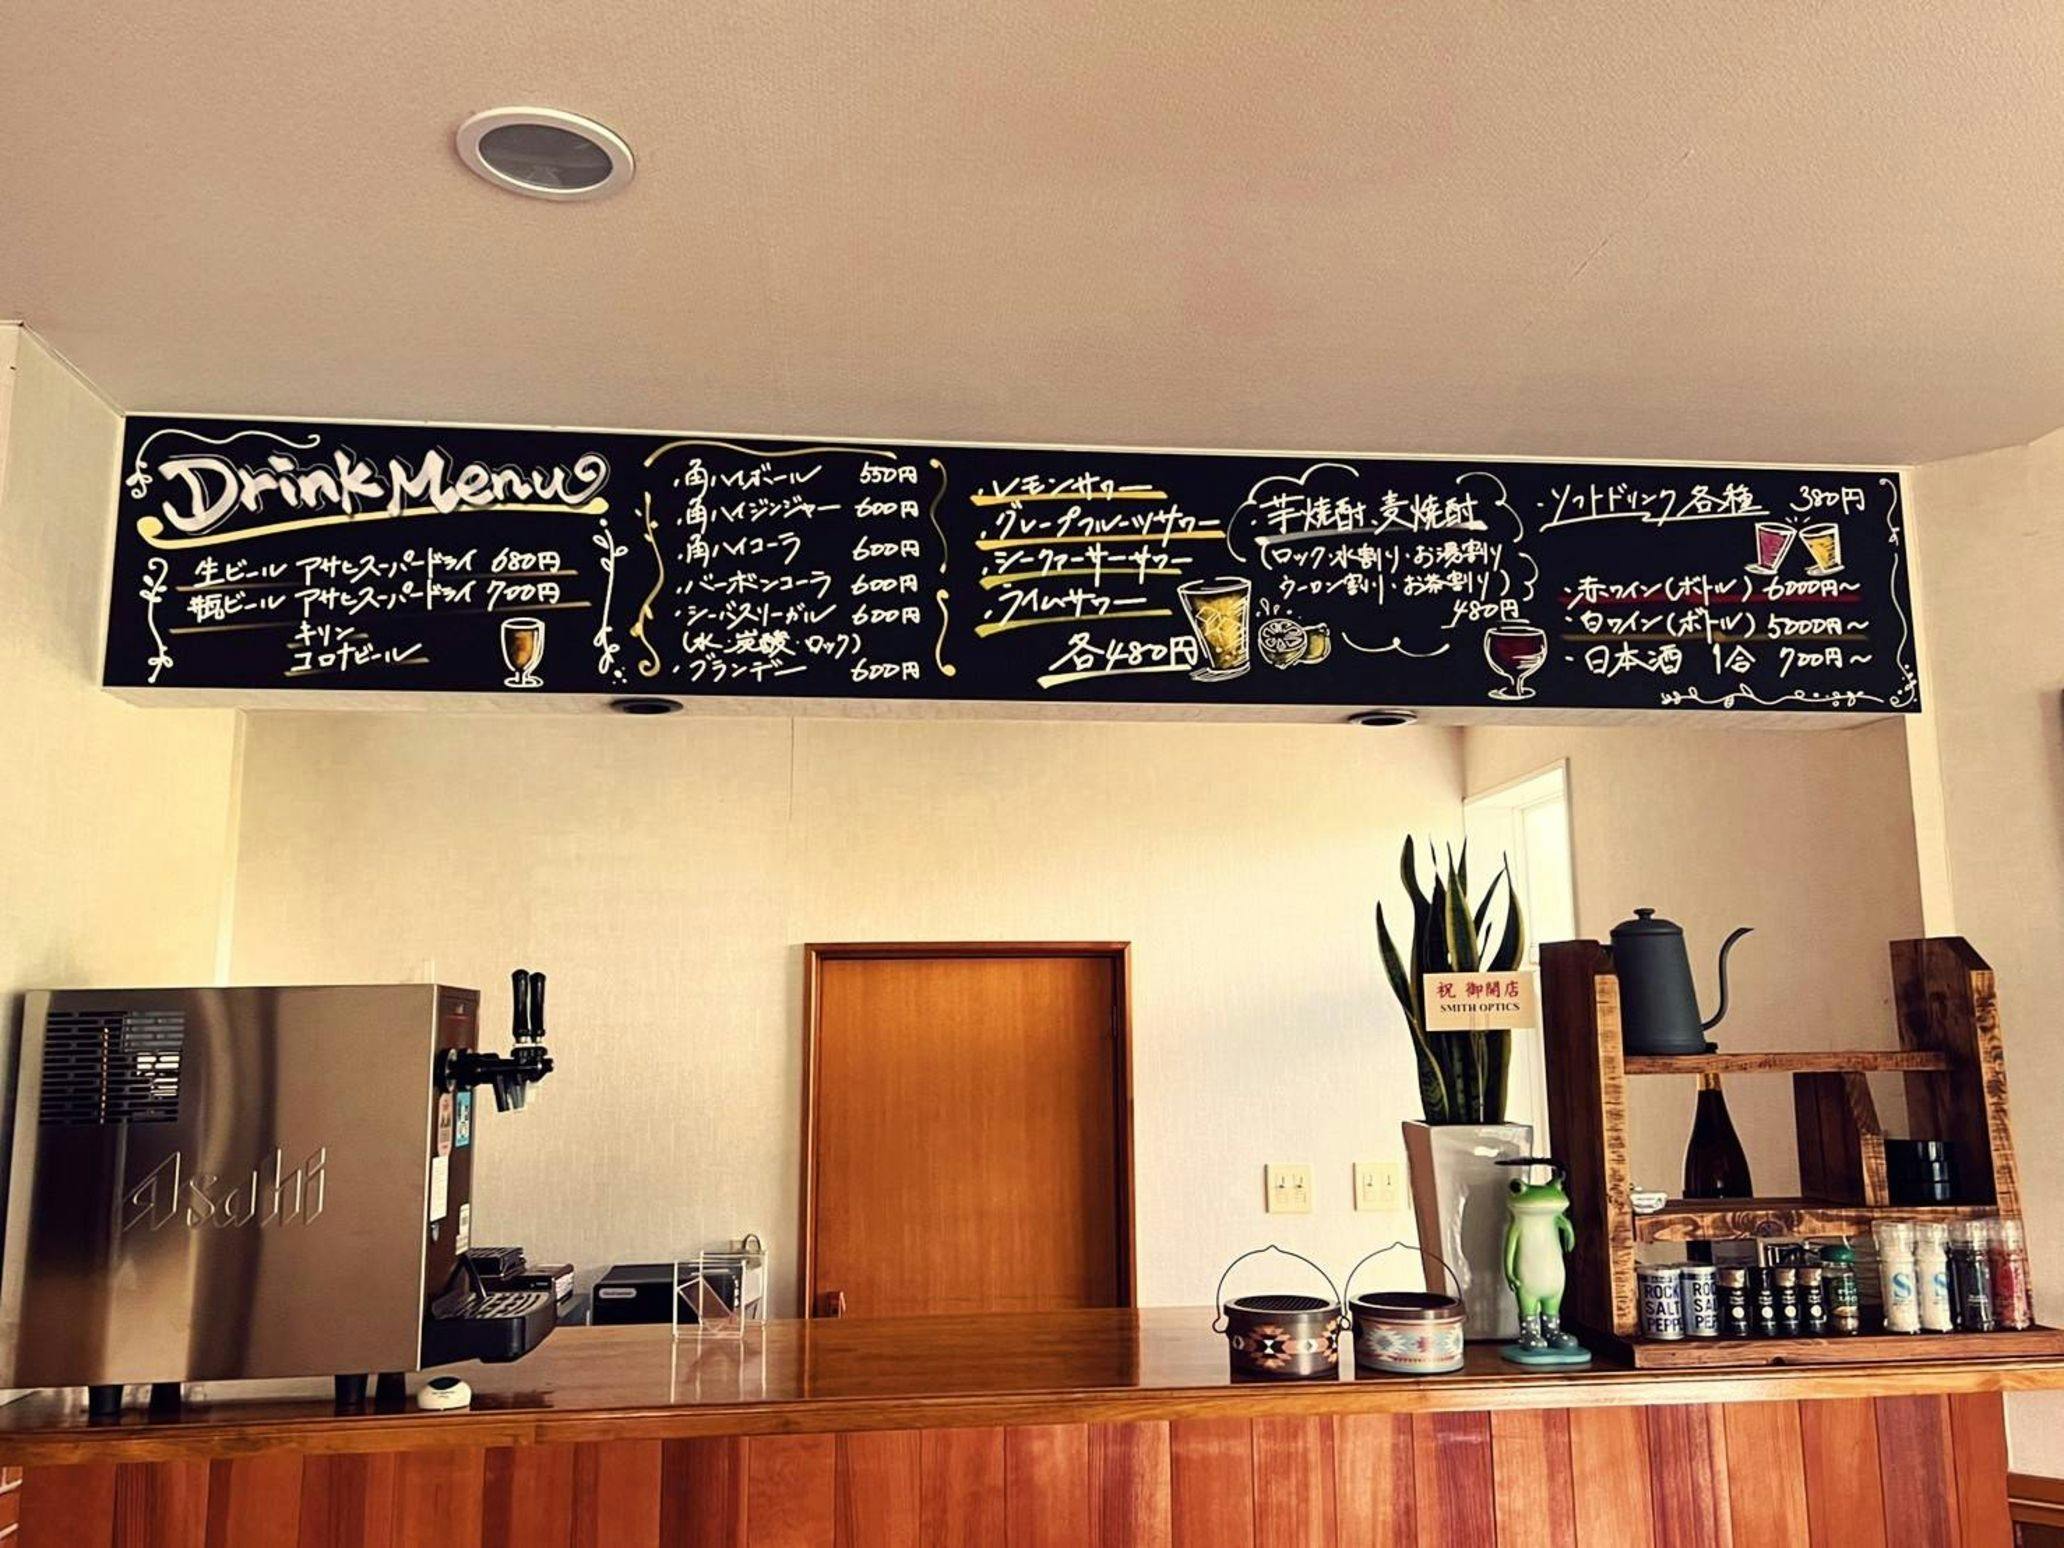 Drink Menu
生ビール アサヒスーパードライ 680円
瓶ビール アサヒスーパードライ 700円
キリン
コロナビール
・角ハイボール 550円
・角ハイジンジャー 600円
・角ハイコーラ 600円
・バーボンコーラ 600円
・シーバスリーガル 600円
(水・炭酸・ロック)
・ブランデー 600円
・レモンサワー
・グレープフルーツサワー
・シークァーサーサワー
・ライムサワー
各480円
・芋焼酎、麦焼酎
(ロック・水割り・お湯割り
ウーロン割り・お茶割り)
480円
・ソフトドリンク各種 380円
・赤ワイン(ボトル) 6000円～
・白ワイン(ボトル) 5000円～
・日本酒 1合 700円～
祝 御開店
SMITH OPTICS
Asahi
ROCK
SALT
PEPP
ROC
SA
PEP
S
S